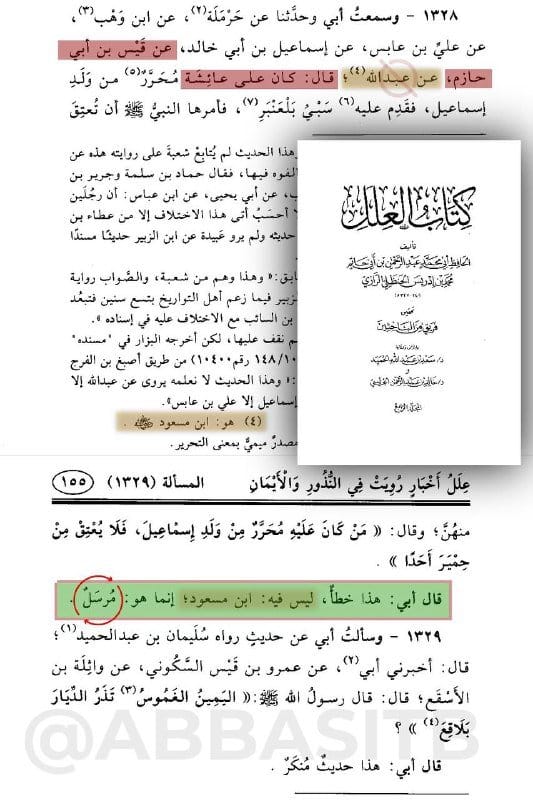 ١٣٢٨ - وسمعتُ أبي وحدَّثنا عن حَرْمَلَة(٢)، عن ابن وَهْب(٣)،
عن عليِّ بن عابس، عن إسماعيل بن أبي خالد، عن قَيْس بن أبي
حازم، عن عبدالله(٤)؛ قال: كان على عائِشَة مُحَرَّرٌ(٥) من وَلَدِ
إسماعيل، فقَدِم عليه(٦) سَبْيُ بَلْعَنْبَرِ(٧)، فأمرها النبيُّ ﷺ أن تُعتِقَ
هذا الحديث لم يُتابِعْ شعبةَ على روايته هذه عن
الفوه فيها، فقال حماد بن سلمة وجرير بن
عن أبي يحيى، عن ابن عباس: أن رجُلَين
لا أحسَبُ أتى هذا الاختلاف إلا من عطاء بن
حديثه ولم يرو عَبيدة عن ابن الزبير حديثًا مسندًا
ابق: « وهذا وهم من شعبة، والصَّواب رواية
زبير فيما زعم أهل التواريخ بتسع سنين فتبعُد
بن السائب مع الاختلاف عليه في إسناده ».
م نقف عليها، لكن أخرجه البزار في "مسنده"
١٤٨/١٠ رقم١٠٤٠٠) من طريق أصبغ بن الفرج
: « وهذا الحديث لا نعلمه يروى عن عبدالله إلا
إسماعيل إلا علي بن عابس».
(٤) هو: ابن مسعود ﷺ .
مصدرٌ ميميٌّ بمعنى التحرير.
كتاب العلل
تأليف
الحافظ أبي محمد عبد الرحمن بن أبي حاتم
محمد بن إدريس الحنظلي الرازي
تحقيق
فريق من الباحثين
بإشراف وعناية
د/ سعد بن عبد الله الحميد
و
د/ خالد بن عبد الرحمن الجريسي
المجلد الرابع
عِلَلُ أَخْبَارٍ رُوِيَتْ فِي النُّذُورِ وَالْأَيْمَانِ المسألة (١٣٢٩) ١٥٥
منهُنَّ؛ وقال: « مَنْ كَانَ عَلَيْهِ مُحَرَّرٌ مِنْ وَلَدِ إِسْمَاعِيلَ، فَلَا يُعْتِقْ مِنْ
حِمْيَرَ أَحَدًا » .
قال أبي: هذا خطأٌ، ليس فيه: ابن مسعود؛ إنما هو: مُرسَلٌ .
١٣٢٩ - وسألتُ أبي عن حديثٍ رواه سُلَيمان بن عبدالحميد(١)؛
قال: أخبرني أبي(٢)، عن عمرو بن قَيْس السَّكُوني، عن واثِلَة بن
الأَسْقَع؛ قال: قال رسولُ الله ﷺ: « اليَمِينُ الغَمُوسُ(٣) تَذَرُ الدِّيَارَ
بَلَاقِعَ(٤) » ؟
قال أبي: هذا حديثٌ مُنكَرٌ .
@ABBASITB